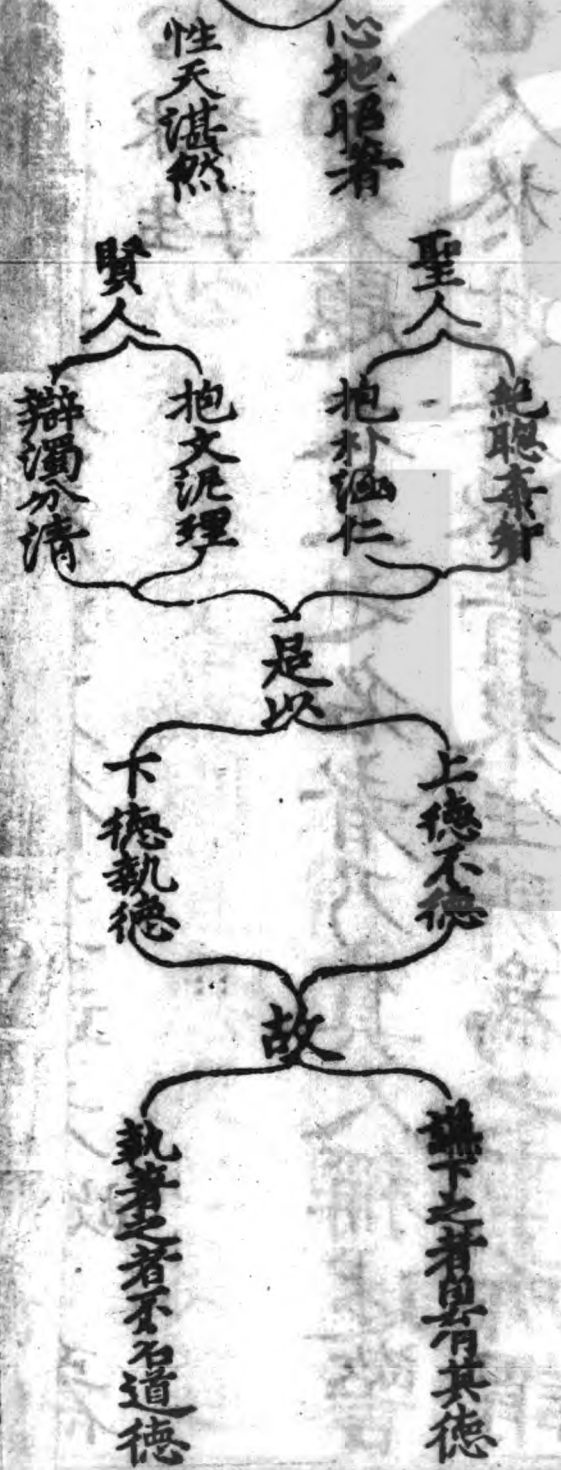 心地昭著
性天湛然
聖人
賢人
絶聰棄智
抱朴涵仁
抱文泥理
辯濁分清
是以
上德不德
下德執德
故
謙下之者畏有其德
執著之者不名道德